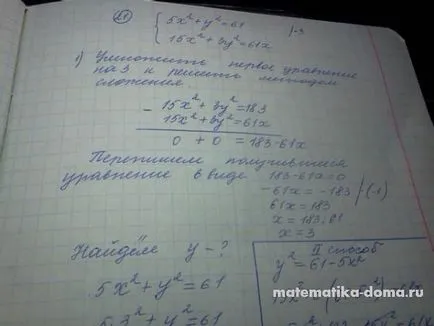 21
5x²+y²=61 |·3
15x²+3y²=61x
1) Умножить первое уравнение
на 3 и решить методом
сложения.
- 15x²+3y²=183
15x²+3y²=61x
0 + 0 = 183-61x
Перепишем получившееся
уравнение в виде 183-61x=0
-61x=-183 |·(-1)
61x=183
x=183:61
x=3
Найдём y-?
5x²+y²=61
II способ
y²=61-5x²
matematika-doma.ru